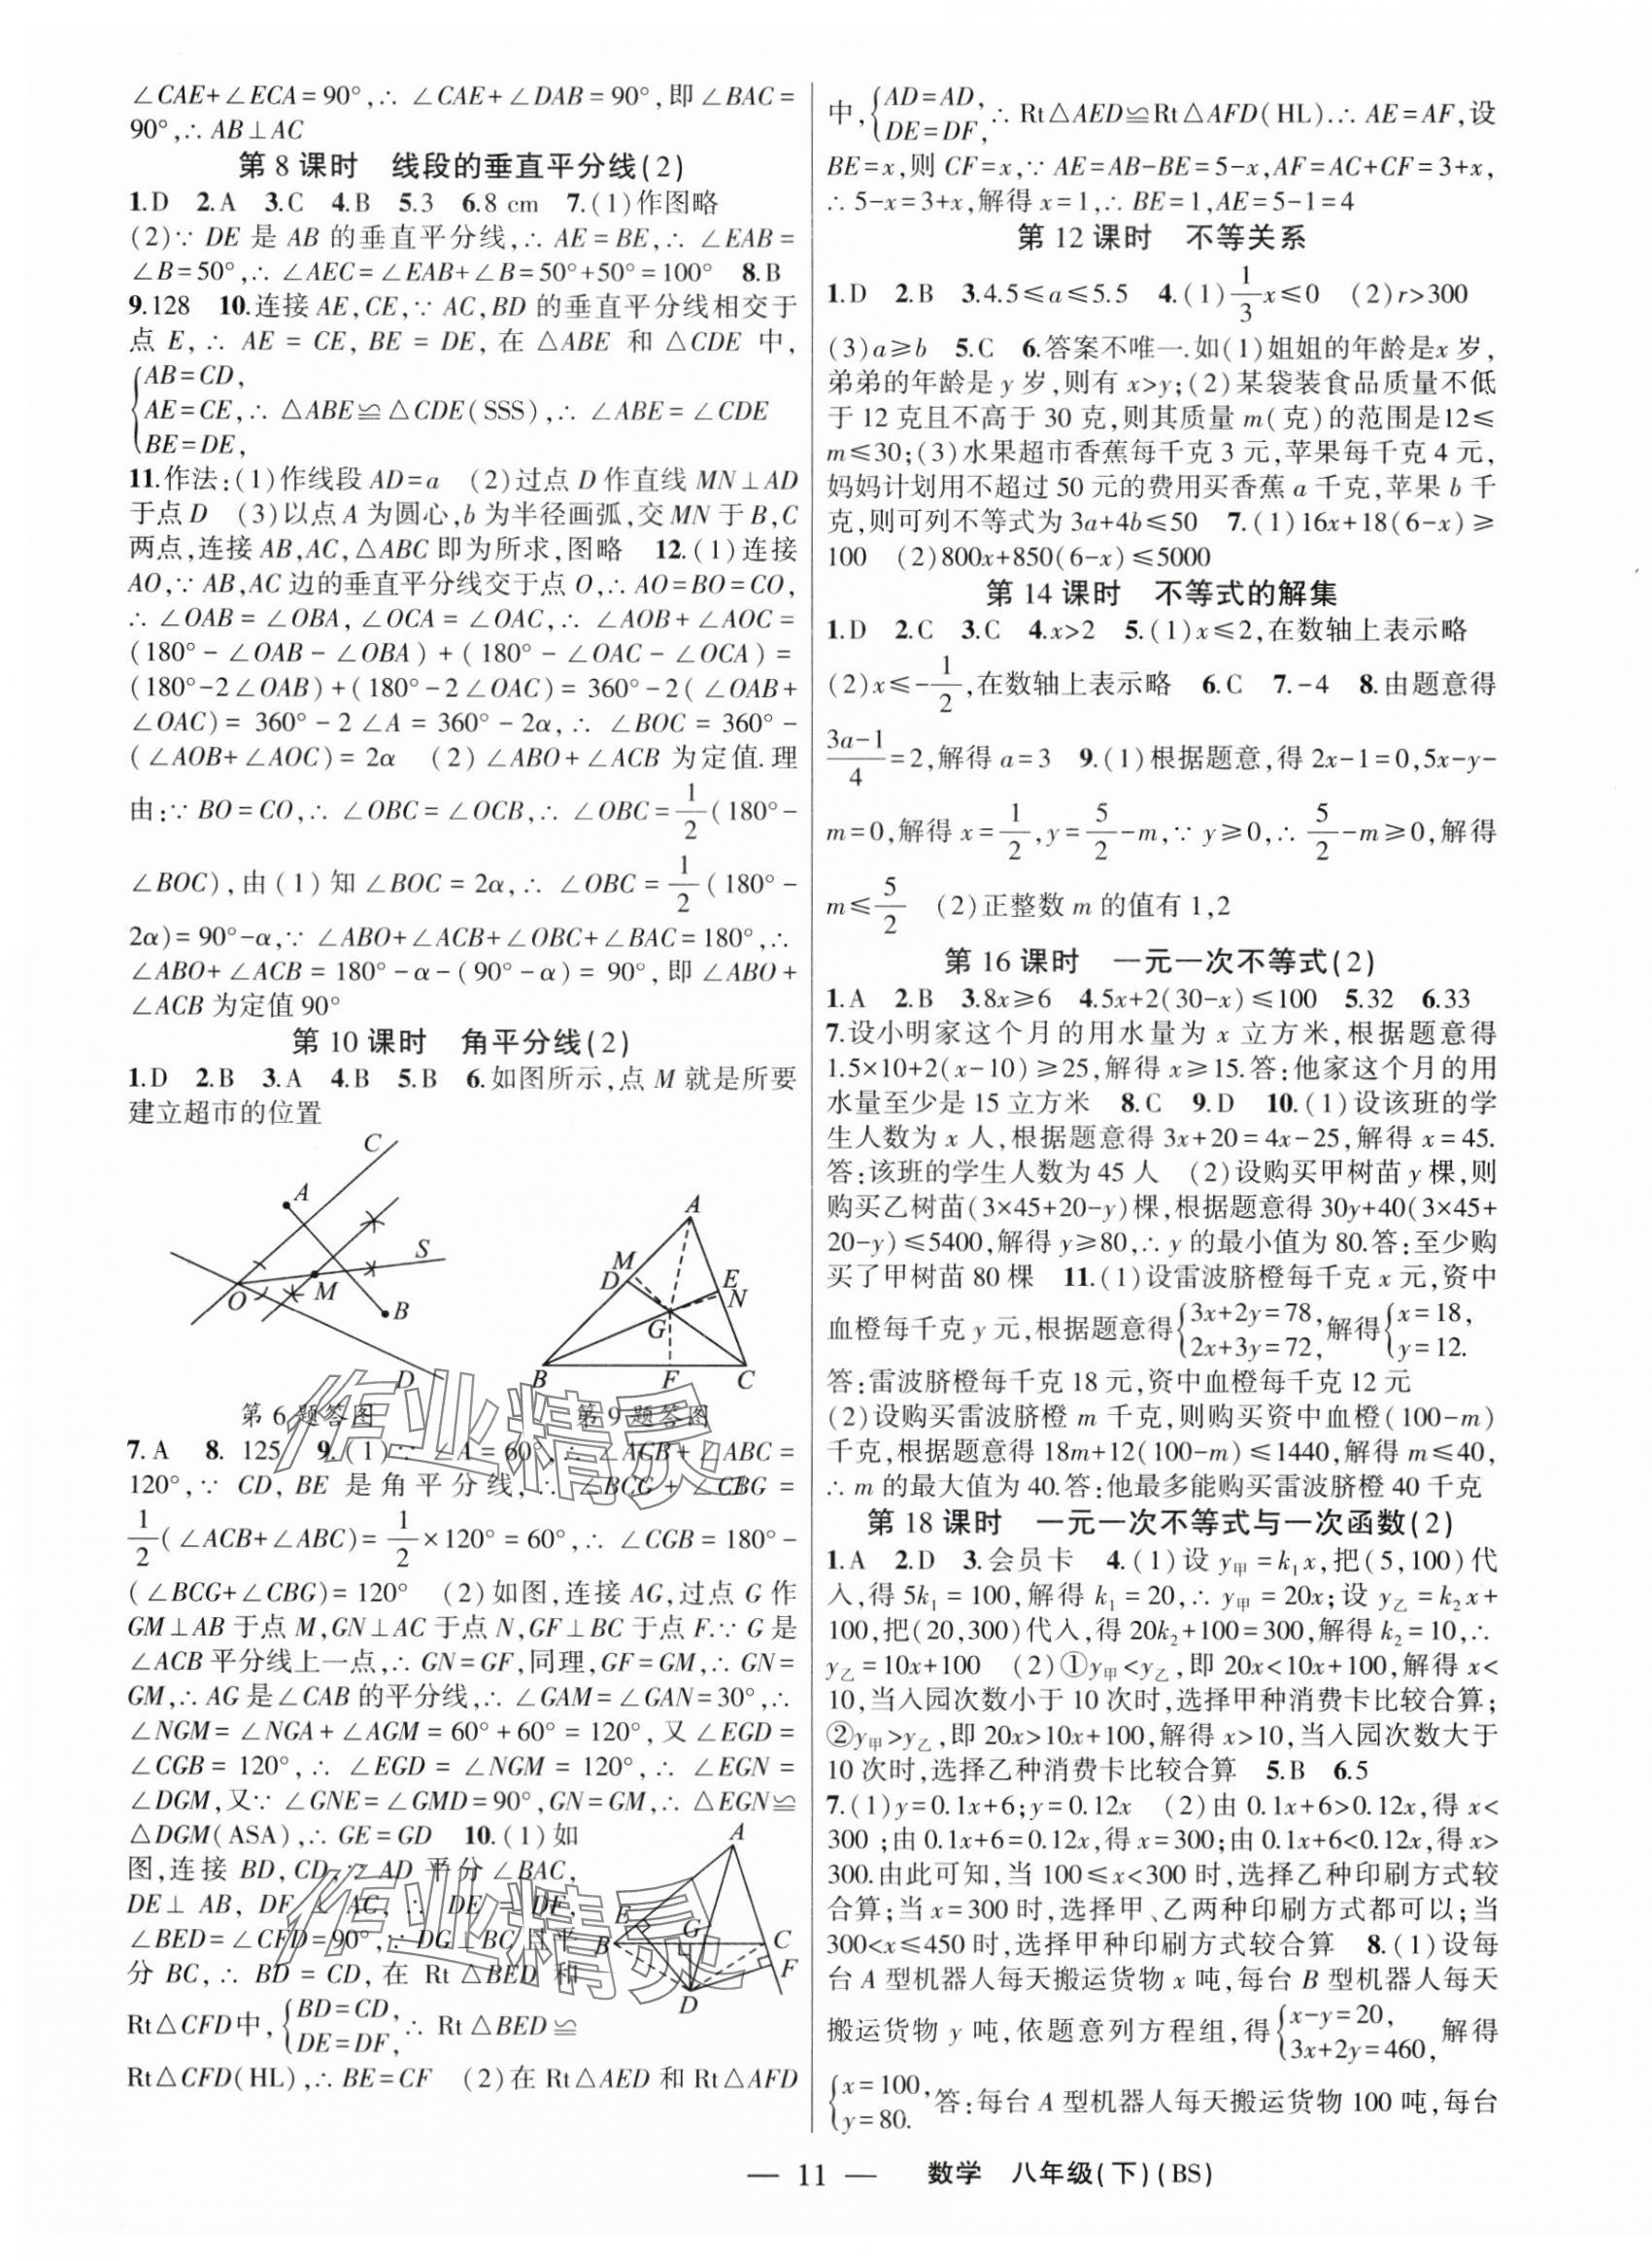 ∠CAE+∠ECA=90°,∴ ∠CAE+∠DAB=90°,即∠BAC=
90°,∴ AB⊥AC
第 8 课时　线段的垂直平分线(2)
1.D　2.A　3.C　4.B　5.3　6.8 cm　7.(1)作图略
(2)∵ DE 是 AB 的垂直平分线,∴ AE=BE,∴ ∠EAB=
∠B=50°,∴ ∠AEC=∠EAB+∠B=50°+50°=100°　8.B
9.128　10.连接 AE,CE,∵ AC,BD 的垂直平分线相交于
点 E,∴ AE = CE, BE = DE, 在 △ABE 和 △CDE 中,
{AB=CD,
AE=CE,∴ △ABE≌△CDE(SSS),∴ ∠ABE=∠CDE
BE=DE,
11.作法:(1)作线段 AD=a　(2)过点 D 作直线 MN⊥AD
于点 D　(3)以点 A 为圆心,b 为半径画弧,交 MN 于 B,C
两点,连接 AB,AC,△ABC 即为所求,图略　12.(1)连接
AO,∵ AB,AC 边的垂直平分线交于点 O,∴ AO=BO=CO,
∴ ∠OAB=∠OBA,∠OCA=∠OAC,∴ ∠AOB+∠AOC=
(180°-∠OAB-∠OBA)+(180°-∠OAC-∠OCA)=
(180°-2∠OAB)+(180°-2∠OAC)=360°-2(∠OAB+
∠OAC)= 360°-2∠A = 360°-2α,∴ ∠BOC = 360°-
(∠AOB+∠AOC)=2α　(2)∠ABO+∠ACB 为定值.理
由:∵ BO=CO,∴ ∠OBC=∠OCB,∴ ∠OBC=1/2(180°-
∠BOC),由(1)知∠BOC=2α,∴ ∠OBC=1/2(180°-
2α)=90°-α,∵ ∠ABO+∠ACB+∠OBC+∠BAC=180°,∴
∠ABO+∠ACB=180°-α-(90°-α)=90°,即∠ABO+
∠ACB 为定值 90°
第 10 课时　角平分线(2)
1.D　2.B　3.A　4.B　5.B　6.如图所示,点 M 就是所要
建立超市的位置
C
A
S
O
M
B
D
第 6 题答图
A
M
D
E
N
G
B
F
C
第 9 题答图
7.A　8. 125　9.(1)∵ ∠A=60°,∴ ∠ACB+∠ABC=
120°,∵ CD,BE 是角平分线,∴ ∠BCG+∠CBG=
1/2(∠ACB+∠ABC)=1/2×120°=60°,∴ ∠CGB=180°-
(∠BCG+∠CBG)=120°　(2)如图,连接 AG,过点 G 作
GM⊥AB 于点 M,GN⊥AC 于点 N,GF⊥BC 于点 F.∵ G 是
∠ACB 平分线上一点,∴ GN=GF,同理,GF=GM,∴ GN=
GM,∴ AG 是∠CAB 的平分线,∴ ∠GAM=∠GAN=30°,∴
∠NGM=∠NGA+∠AGM=60°+60°=120°,又∠EGD=
∠CGB=120°,∴ ∠EGD=∠NGM=120°,∴ ∠EGN=
∠DGM,又∵ ∠GNE=∠GMD=90°,GN=GM,∴ △EGN≌
△DGM(ASA),∴ GE=GD　10.(1)如
图,连接 BD,CD,∵ AD 平分∠BAC,
DE⊥AB, DF⊥AC, ∴ DE = DF,
∠BED=∠CFD=90°,∵ DG⊥BC 且平
分 BC,∴ BD = CD, 在 Rt△BED 和
Rt△CFD中,{BD=CD, DE=DF,∴ Rt△BED≌
Rt△CFD(HL),∴ BE=CF　(2)在 Rt△AED 和 Rt△AFD
A
E
B
G
C
F
D
中,{AD=AD, DE=DF,∴ Rt△AED≌Rt△AFD(HL).∴ AE=AF,设
BE=x,则 CF=x,∵ AE=AB-BE=5-x,AF=AC+CF=3+x,
∴ 5-x=3+x,解得 x=1,∴ BE=1,AE=5-1=4
第 12 课时　不等关系
1.D　2.B　3.4.5≤a≤5.5　4.(1)1/3x≤0　(2)r>300
(3)a≥b　5.C　6.答案不唯一.如(1)姐姐的年龄是x 岁,
弟弟的年龄是 y 岁,则有 x>y;(2)某袋装食品质量不低
于 12 克且不高于 30 克,则其质量 m(克)的范围是12≤
m≤30;(3)水果超市香蕉每千克 3 元,苹果每千克 4 元,
妈妈计划用不超过 50 元的费用买香蕉 a 千克,苹果 b 千
克,则可列不等式为 3a+4b≤50　7.(1)16x+18(6-x)≥
100　(2)800x+850(6-x)≤5000
第 14 课时　不等式的解集
1.D　2.C　3.C　4.x>2　5.(1)x≤2,在数轴上表示略
(2)x≤-1/2,在数轴上表示略　6.C　7.-4　8.由题意得
(3a-1)/4=2,解得 a=3　9.(1)根据题意,得 2x-1=0,5x-y-
m=0,解得 x=1/2,y=5/2-m,∵ y≥0,∴ 5/2-m≥0,解得
m≤5/2　(2)正整数 m 的值有 1,2
第 16 课时　一元一次不等式(2)
1.A　2.B　3.8x≥6　4.5x+2(30-x)≤100　5.32　6.33
7.设小明家这个月的用水量为 x 立方米,根据题意得
1.5×10+2(x-10)≥25,解得 x≥15.答:他家这个月的用
水量至少是 15 立方米　8.C　9.D　10.(1)设该班的学
生人数为 x 人,根据题意得 3x+20=4x-25,解得 x=45.
答:该班的学生人数为 45 人　(2)设购买甲树苗 y 棵,则
购买乙树苗(3×45+20-y)棵,根据题意得 30y+40(3×45+
20-y)≤5400,解得 y≥80,∴ y 的最小值为 80.答:至少购
买了甲树苗 80 棵　11.(1)设雷波脐橙每千克 x 元,资中
血橙每千克 y 元,根据题意得{3x+2y=78, 2x+3y=72,解得{x=18, y=12.
答:雷波脐橙每千克 18 元,资中血橙每千克 12 元
(2)设购买雷波脐橙 m 千克,则购买资中血橙(100-m)
千克,根据题意得 18m+12(100-m)≤1440,解得 m≤40,
∴ m 的最大值为 40.答:他最多能购买雷波脐橙 40 千克
第 18 课时　一元一次不等式与一次函数(2)
1.A　2.D　3.会员卡　4.(1)设 y甲=k₁x,把(5,100)代
入,得 5k₁=100,解得 k₁=20,∴ y甲=20x;设 y乙=k₂x+
100,把(20,300)代入,得 20k₂+100=300,解得 k₂=10,∴
y乙=10x+100　(2)①y甲<y乙,即 20x<10x+100,解得 x<
10,当入园次数小于 10 次时,选择甲种消费卡比较合算;
②y甲>y乙,即 20x>10x+100,解得 x>10,当入园次数大于
10 次时,选择乙种消费卡比较合算　5.B　6.5
7.(1)y=0.1x+6;y=0.12x　(2)由 0.1x+6>0.12x,得 x<
300 ;由 0.1x+6=0.12x,得 x=300;由 0.1x+6<0.12x,得 x>
300.由此可知,当 100≤x<300 时,选择乙种印刷方式较
合算;当 x=300 时,选择甲、乙两种印刷方式都可以;当
300<x≤450 时,选择甲种印刷方式较合算　8.(1)设每
台 A 型机器人每天搬运货物 x 吨,每台 B 型机器人每天
搬运货物 y 吨,依题意列方程组,得{x-y=20, 3x+2y=460,解得
{x=100, y=80.答:每台 A 型机器人每天搬运货物 100 吨,每台
作业精灵
作业精灵
— 11 —　数学　八年级(下)(BS)